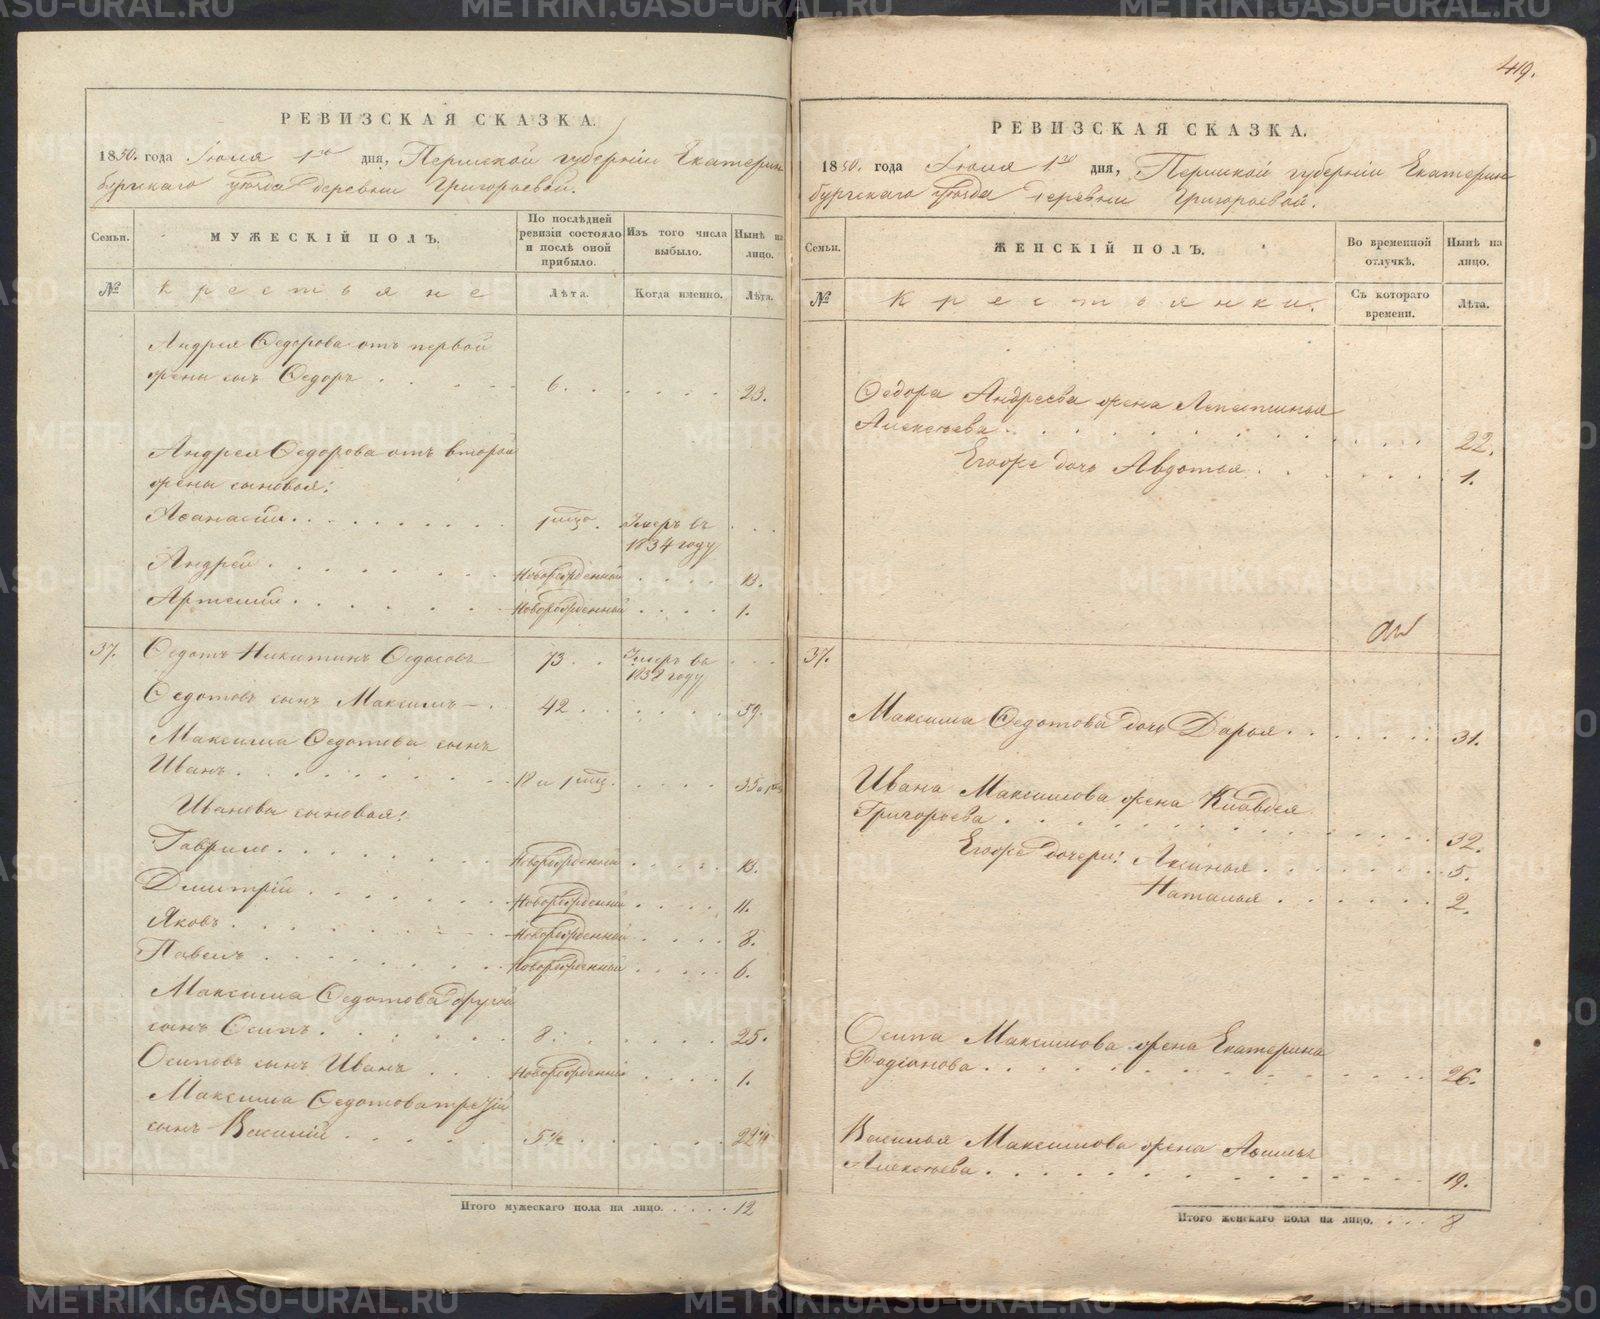 419.
РЕВИЗСКАЯ СКАЗКА.
1850. года Июля 1го дня, Пермской губерніи Екатерин
бургскаго уѣзда деревни Григорьевой.
Семьи.
МУЖЕСКІЙ ПОЛЪ.
По послѣдней ревизіи состояло и послѣ оной прибыло.
Изъ того числа выбыло.
Нынѣ на лицо.
№
Крестьяне
Лѣта.
Когда именно.
Лѣта.
Андрея Ѳедорова отъ первой
жены сынъ Ѳедоръ . . . . 6. . . . . 23.
Андрея Ѳедорова отъ второй
жены сыновья:
Аѳанасій . . . . 1 мѣс. Умеръ въ 1834 году . . .
Андрей . . . . Новорожденный . . . . 13.
Артемій . . . . Новорожденный . . . . 1.
37. Ѳедотъ Никитинъ Ѳедосовъ 73 . . Умеръ въ 1838 году . . .
Ѳедотовъ сынъ Максимъ — . 42 . . . . . 59.
Максима Ѳедотова сынъ
Иванъ . . . . 18 и 1 мѣс. . . . . 35
Иванова сыновья:
Гаврило . . . . Новорожденный . . . . 13.
Дмитрій . . . . Новорожденный . . . . 11.
Яковъ . . . . Новорожденный . . . . 8.
Павелъ . . . . Новорожденный . . . . 6.
Максима Ѳедотова другой
сынъ Осипъ . . . . 8. . . . . 25.
Осиповъ сынъ Иванъ . . . Новорожденный . . . . 1.
Максима Ѳедотова третій
сынъ Василій . . . . 5½ . . . . 22½
Итого мужескаго пола на лицо. . . . . 12
РЕВИЗСКАЯ СКАЗКА.
1850. года Июля 1го дня, Пермской губерніи Екатерин
бургскаго уѣзда деревни Григорьевой.
Семьи.
ЖЕНСКІЙ ПОЛЪ.
Во временной отлучкѣ.
Нынѣ на лицо.
№
Крестьянки.
Съ котораго времени.
Лѣта.
Ѳедора Андреева жена Степанида
Алексѣева . . . . 22.
Егоже дочь Авдотья . . . . 1.
37.
Максима Ѳедотова дочь Дарья . . . . 31.
Ивана Максимова жена Клавдея
Григорьева . . . . 32.
Егоже дочери: Аксинья . . . . 5.
Наталья . . . . 2.
Осипа Максимова жена Екатерина
Родіонова . . . . 26.
Василья Максимова жена
Алексѣева . . . . 19.
Итого женскаго пола на лицо. . . . 8
METRIKI.GASO-URAL.RU